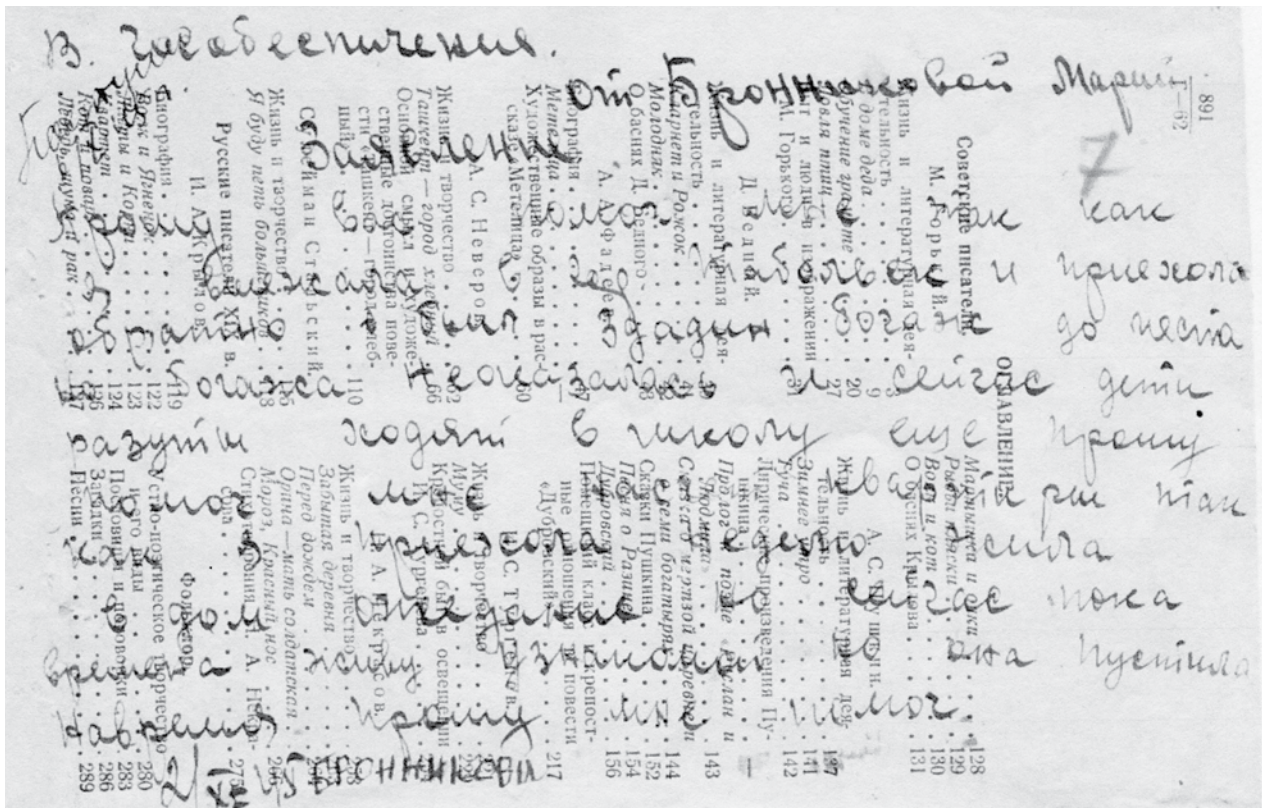 В. Гособеспичения.
от Бронниковой Марии
7
Заявление
Прошу Вас помоч мне так как
я выежала в Тобольск и приехола
обратно был здадин богаж до места
и богажа неоказалась и сейчас дети
разуты ходят в школу еще прошу
помоч мне квартири так
как я приехола жила
в дом но сейчас пока
времена живу узнакомой но она пустила
навремя прошу мне помоч
2/XII 45 Бронникова
891
Г—62
ОГЛАВЛЕНИЕ
Советские писатели
М. Горький.
Жизнь и литературная дея-
тельность
В доме деда 9
Обучение грамоте 20
Ловля птиц 27
М. Горького 31
Д. Бедный.
Жизнь и литературная дея-
тельность
Кларнет и Рожок
Молодняк
О баснях Д. Бедного
А. А. Фадеев
Биография
Метелица
Художественные образы в рас-
сказе „Метелица“ 60
А. С. Неверов
Жизнь и творчество 62
Ташкент — город хлебный 66
Основной смысл и художе-
ственные достоинства пове-
сти „Ташкент — город хлеб-
ный“ 110
Сулейман Стальский
Жизнь и творчество
Я буду петь большевиков
Русские писатели XIX в.
И. А. Крылов.
Биография 119
Волк и Ягненок 122
123
Квартет 124
126
Лебедь, щука и рак 127
Мартышка и очки 128
Рыбьи пляски 129
Волк и кот 130
О баснях Крылова 131
А. С. Пушкин.
Жизнь и литературная дея-
тельность 137
Зимнее утро 141
Туча 142
Лирические произведения Пу-
шкина
Пролог к поэме „Руслан и
Людмила“ 143
Сказка о мертвой царевне и
о семи богатырях 144
Сказки Пушкина 152
Песня о Разине 154
Дубровский 156
Помещичий класс и крепост-
ные отношения в повести
«Дубровский» 217
И. С. Тургенев.
Жизнь и творчество
Муму
Крепостной быт в освещении
И. С. Тургенева
Н. А. Некрасов.
Жизнь и творчество
Забытая деревня
Перед дождем
Орина — мать солдатская
Мороз, Красный нос
Стихотворения Н. А. Некра-
сова 275
Фольклор
Устно-поэтическое творчество
и его виды 280
Пословицы и поговорки 283
Загадки 286
Песни 289